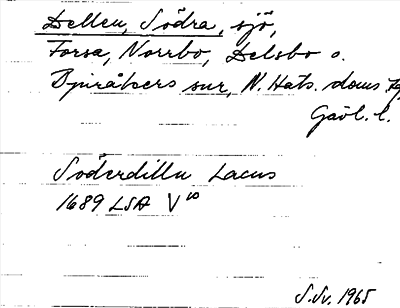 Dellen, Södra, sjö,
Forsa, Norrbo, Delsbo o.
Bjuråkers snr, N. Häls. doms. tg
Gävl. l.
Söderdilln Lacus
1689 LSA V 10
S. Sv. 1965